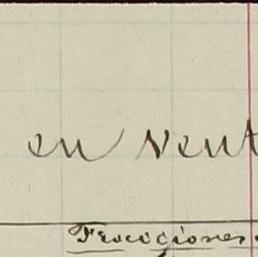 en vent
Fracciones